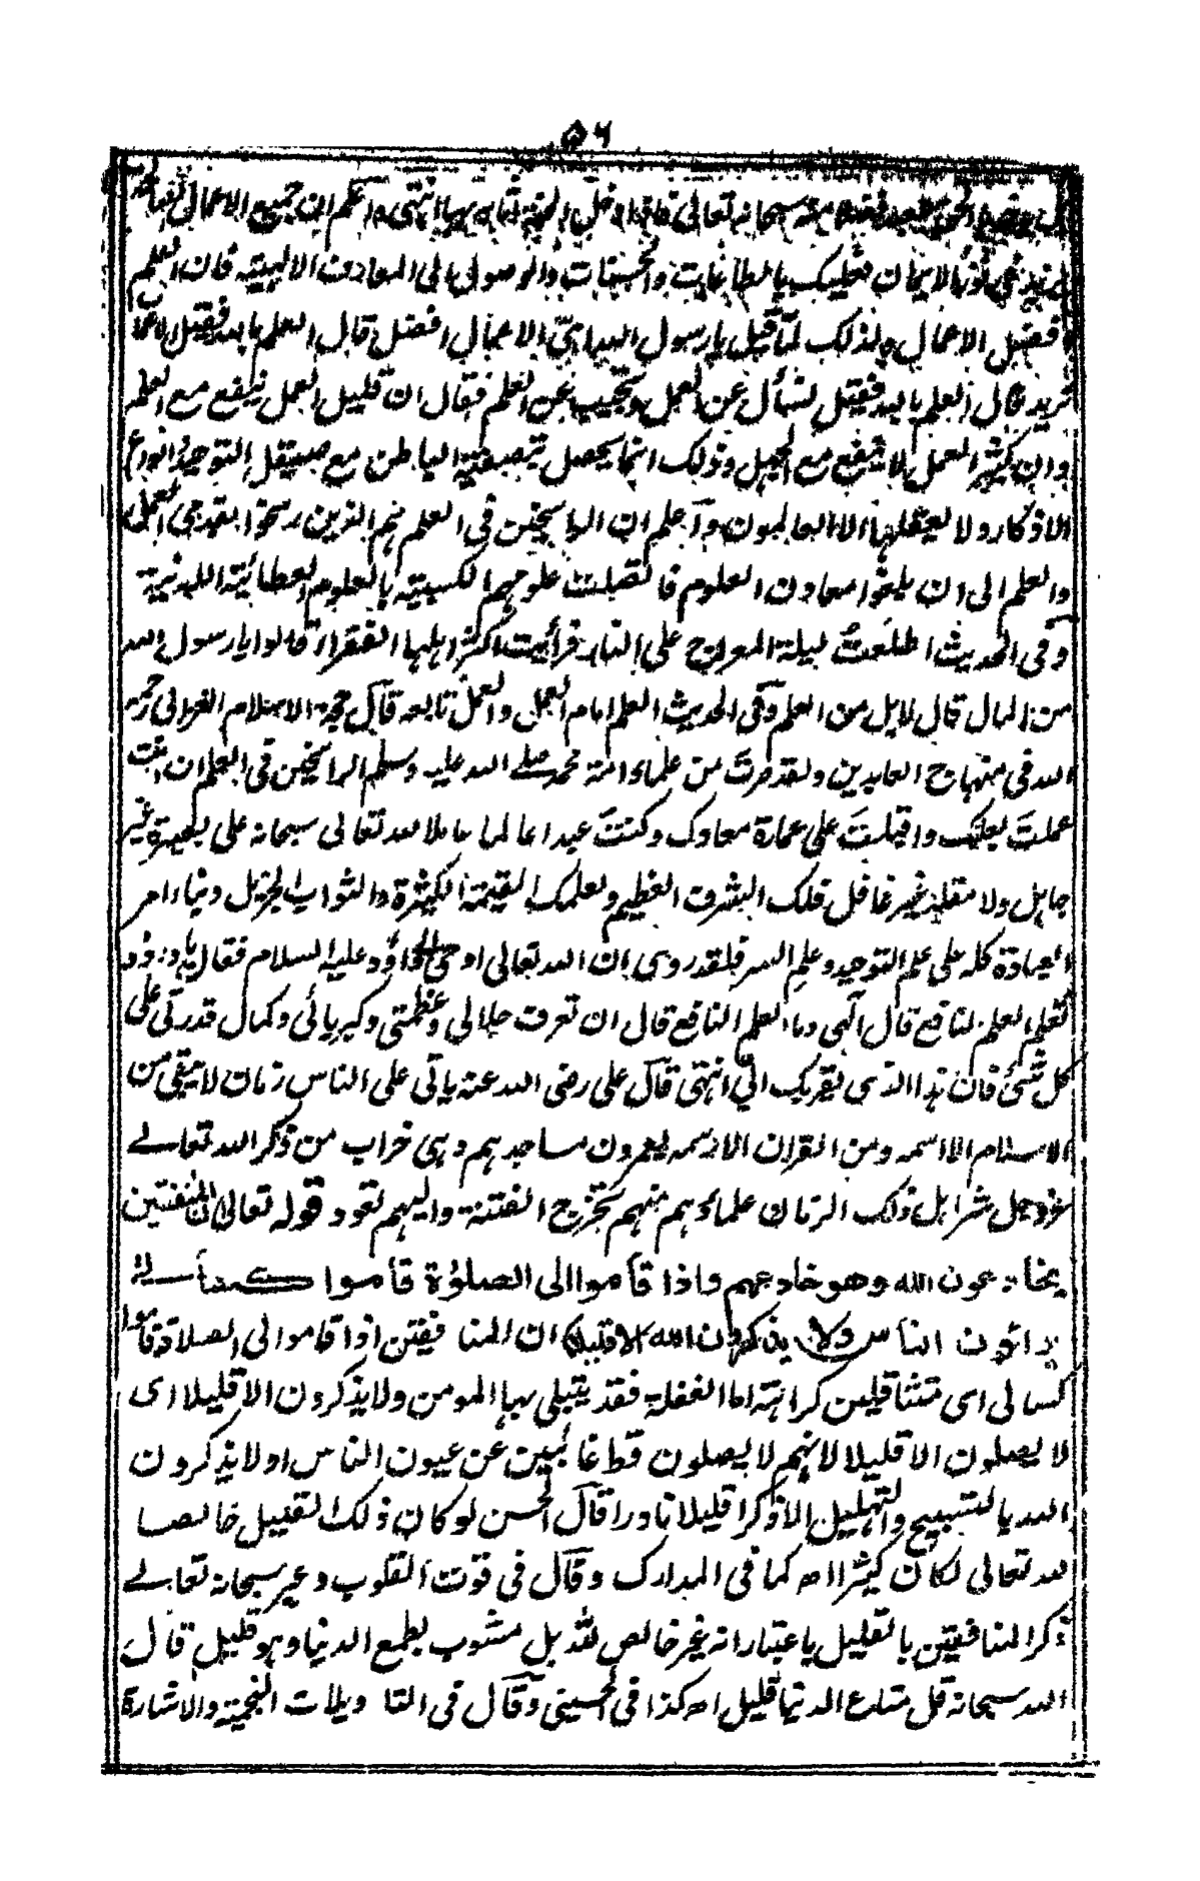 ۵۶
سبحانه تعالى فاذا دخل الجنة اثابه بها انتهى واعلم ان جميع الاعمال الصالحة
يزيد في نور الايمان فعليك بالطاعات والحسنات والوصول الى المعارف الالهية فان العلم
افضل الاعمال ولذلك لما قيل يا رسول الله اى الاعمال افضل قال العلم بالله فقيل الاعمال
نريد قال العلم بالله فقيل نسأل عن العمل وتجيب عن العلم فقال ان قليل العمل ينفع مع العلم
وان كثير العمل لا ينفع مع الجهل وذلك انما يحصل بتصفية الباطن مع صيقل التوحيد وانواع
الاذكار ولا يعقلها الا العالمون واعلم ان الراسخين فى العلم هم الذين رسخوا بقدمى العمل
والعلم الى ان بلغوا معادن العلوم فاتصلت علومهم الكسبية بالعلوم العطائية اللدنية
وفى الحديث اطلعت ليلة المعراج على النار فرأيت اكثر اهلها الفقراء قالوا يا رسول الله
من المال قال لا بل من العلم وفى الحديث العلم امام العمل والعمل تابعه قال حجة الاسلام الغزالى رحمه
الله فى منهاج العابدين ولقد صرت من علماء امة محمد صلى الله عليه وسلم الراسخين فى العلم ان انت
عملت بعلمك واقبلت على عمارة معادك وكنت عبدا عالما عاملا لله تعالى سبحانه على بصيرة غير
جاهل ولا مقلد غير غافل فلك الشرف العظيم ولعلمك القيمة الكثيرة والثواب الجزيل وبناء امر
العبادة كله على علم التوحيد وعلم السر فلقد روى ان الله تعالى اوحى الى داؤد عليه السلام فقال يا داؤد
تعلم العلم النافع قال الهى وما العلم النافع قال ان تعرف جلالى وعظمتى وكبريائى وكمال قدرتى على
كل شئ فان هذا الذى يقربك الى انتهى قال على رضى الله عنه ياتى على الناس زمان لا يبقى من
الاسلام الا اسمه ومن القران الا رسمه يعمرون مساجدهم وهى خراب من ذكر الله تعالے
عزوجل شر اهل ذلك الزمان علماءهم منهم تخرج الفتنة واليهم تعود قوله تعالى ان المنفقين
يخادعون الله وهو خادعهم واذا قاموا الى الصلوٰة قاموا كسالے
يرائون الناس ولا يذكرون الله الا قليلا ان المنافقين اذا قاموا الى الصلاة قاموا
كسالى اى متثاقلين كراهة اما الغفلة فقد يبتلى بها المومن ولا يذكرون الا قليلا اى
لا يصلون الا قليلا لانهم لا يصلون قط غائبين عن عيون الناس او لا يذكرون
الله بالتسبيح والتهليل الا ذكرا قليلا نادرا قال الحسن لو كان ذلك القليل خالصا
لله تعالى لكان كثيرا اھ كما فى المدارك وقال فى قوت القلوب وعير سبحانه تعالے
ذكر المنافقين بالتقليل باعتبار انه غير خالص لله بل مشوب بطمع الدنيا وهو قليل قال
الله سبحانه قل متاع الدنيا قليل اھ كذا فى الحسينى وقال فى التاويلات النجمية والاشارة